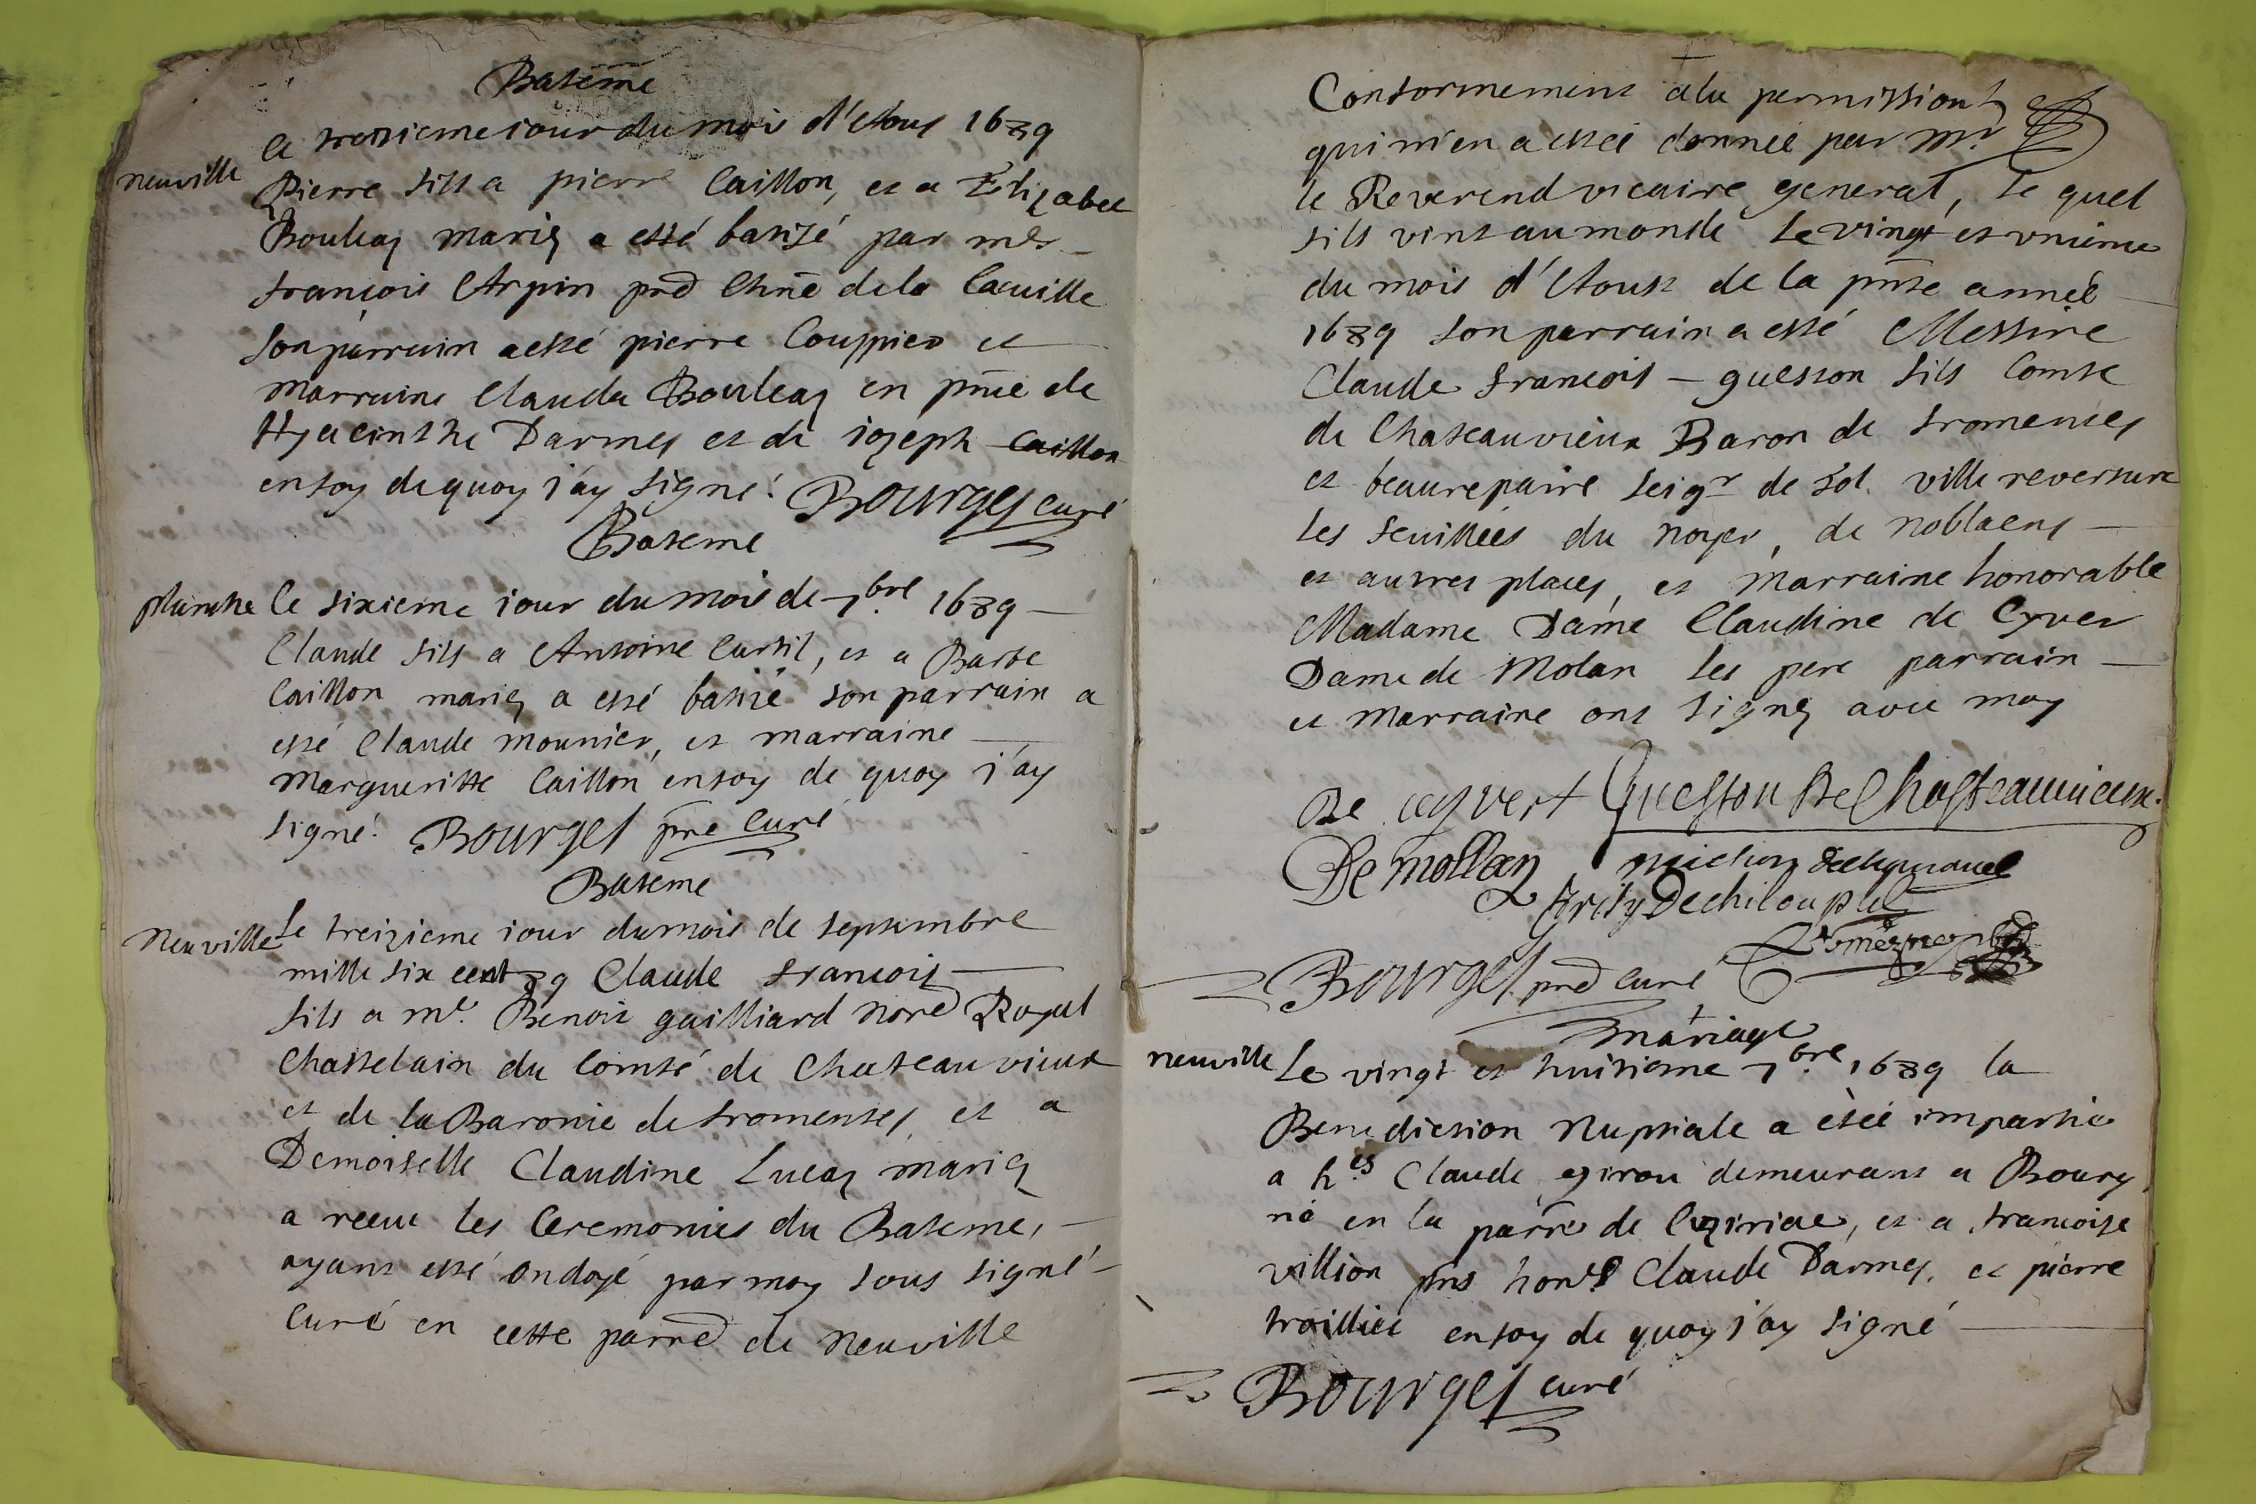 Bateme
neuville
le treizieme iour du mois d'Aous 1689
Pierre fils a pierre Caillon, et a Elizabet
Bouleaz mariez a esté batizé par mre
françois Arpin prb Chne de la Cauille
son parrain a esté pierre Couppier et
marraine Clauda Bouleaz en pnce de
Hyacinthe Darmes et de iozeph Caillon
en foy de quoy j'ay signé. Bourges curé
Bateme
planche le sixieme iour du mois de 7bre 1689
Claude fils a Antoine Curtil, et a Barbe
Caillon mariez a esté batizé son parrain a
esté Claude mounier, et marraine
Margueritte Caillon en foy de quoy j'ay
signé. Bourges pre curé
Bateme
Neuville Le treizieme iour du mois de septembre
mille six cent 89 Claude francois
fils a mr. Benoit guilliard nore Royal
Chastelain du Comté de Chateauvieux
et de la Baronie de fromentes, et a
Demoiselle Claudine Lucaz mariez
a receu les Ceremonies du Bateme,
ayant esté ondoyé par moy sous signé
Curé en cette parre de Neuville
Conformement a la permission
qui m'en a estée donnée par Mr
le Reverend vicaire general, le quel
fils vint au monde le vingt et vnieme
du mois d'Aoust de la pnte année
1689 son parrain a esté Messire
Claude francois - gueston fils Comte
de Chateauvieux Baron de fromentes
et beaurepaire seigr de fol. ville reversure
les feuillées du noyer, de noblaens
et autres places, et Marraine honorable
Madame Dame Claudine de Cyver
Dame de Molan les pere parrain
et Marraine ont signez avec moy
De cyvert Gueston De Chasteauuieux.
De mollan
Bourges prb curé
mariage
neuville Le vingt et huitieme 7bre 1689 la
Benediction Nuptiale a estée impartie
a hes Claude girou demeurant a Bourg
né en la parre de Ceziriae, et a francoise
villion pns hones Claude Darmes, et pierre
trailliet en foy de quoy j'ay signé
Bourges curé